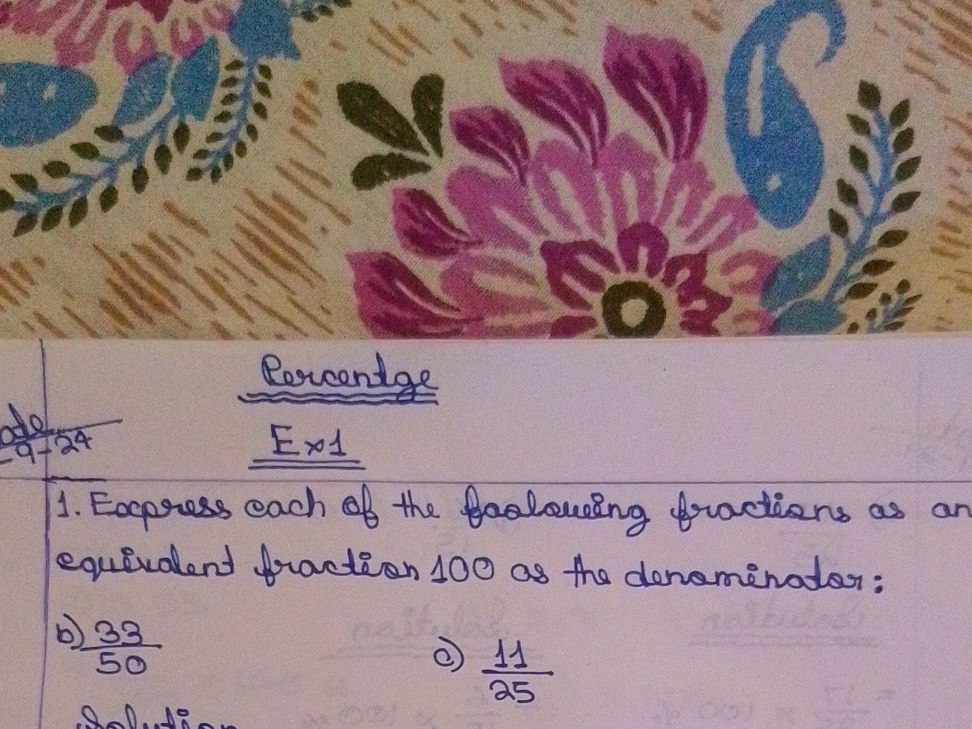 Percentge
Ex1
-9-24
1. Express each of the foolowing fractions as an
equivalent fraction 100 as the denominator:
b) 33/50 c) 11/25
Solution